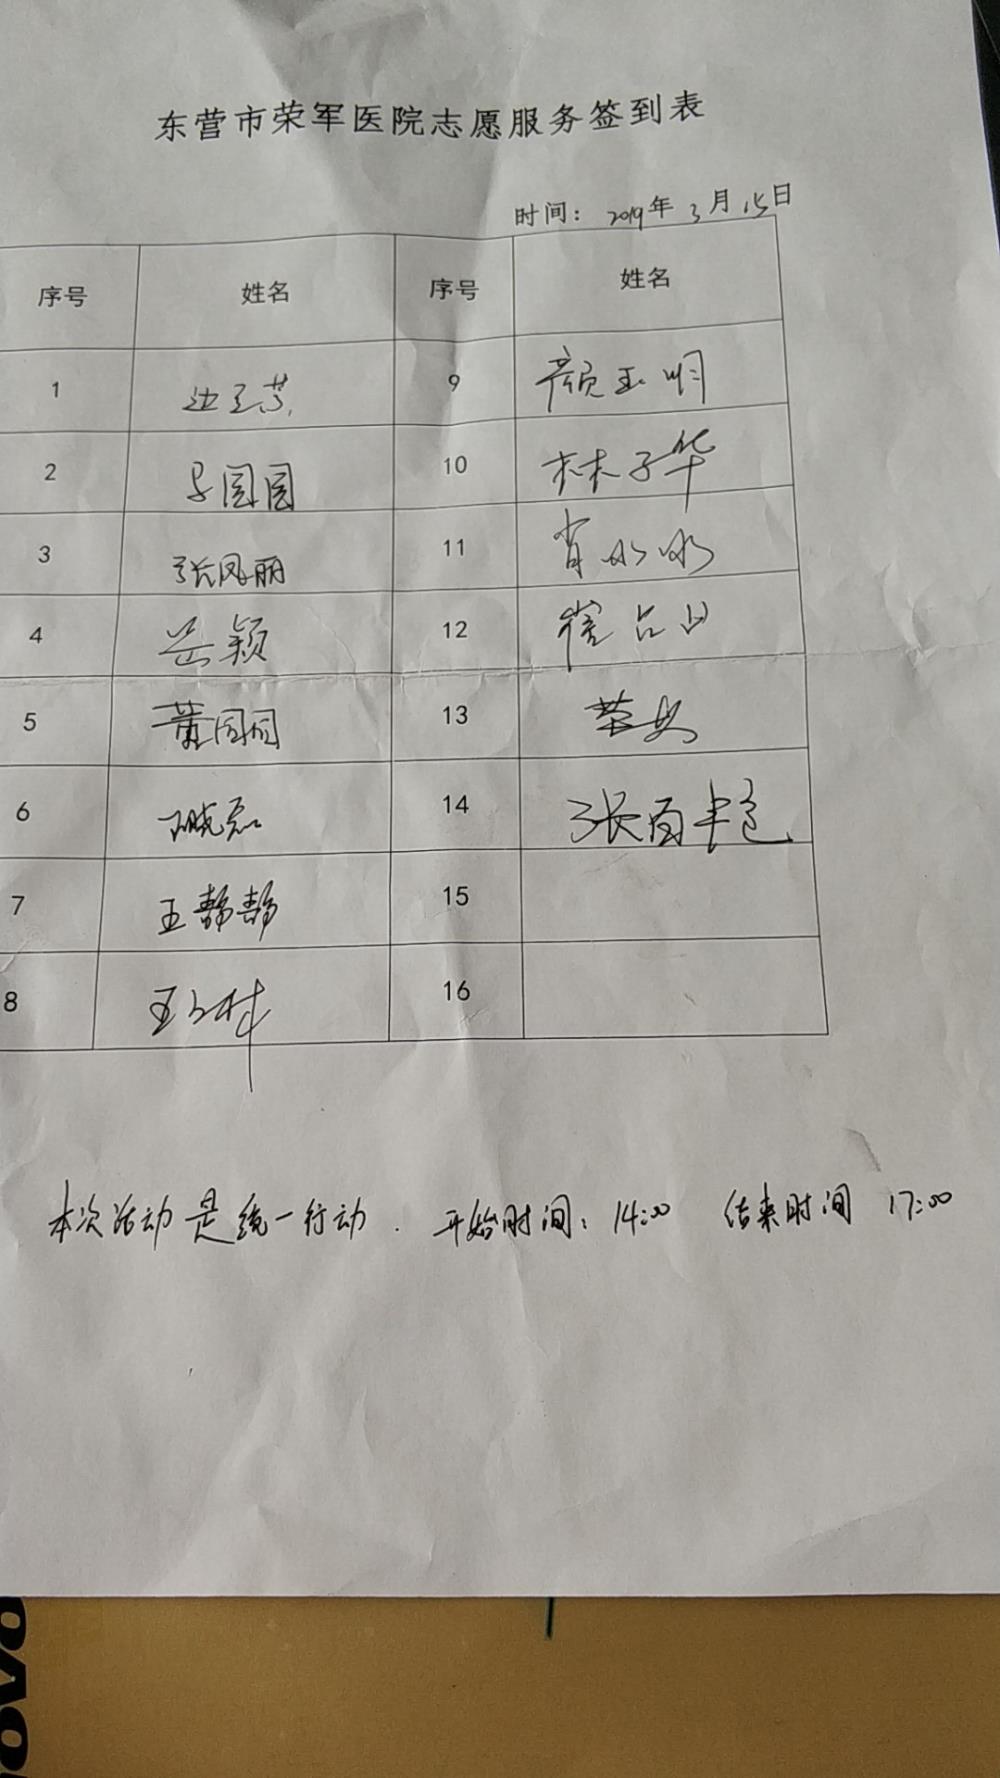 东营市荣军医院志愿服务签到表
时间： 2019年 3月 15日
序号 姓名 序号 姓名
1 9 颜玉明
2 园园 10 林子华
3 张凤丽 11 肖水水
4 岳颖 12 崔占
5 董同同 13 荣
6 晓磊 14 张百艳
7 王静静 15
8 王 16
本次活动是统一行动. 开始时间：14:00 结束时间 17:00
ovo